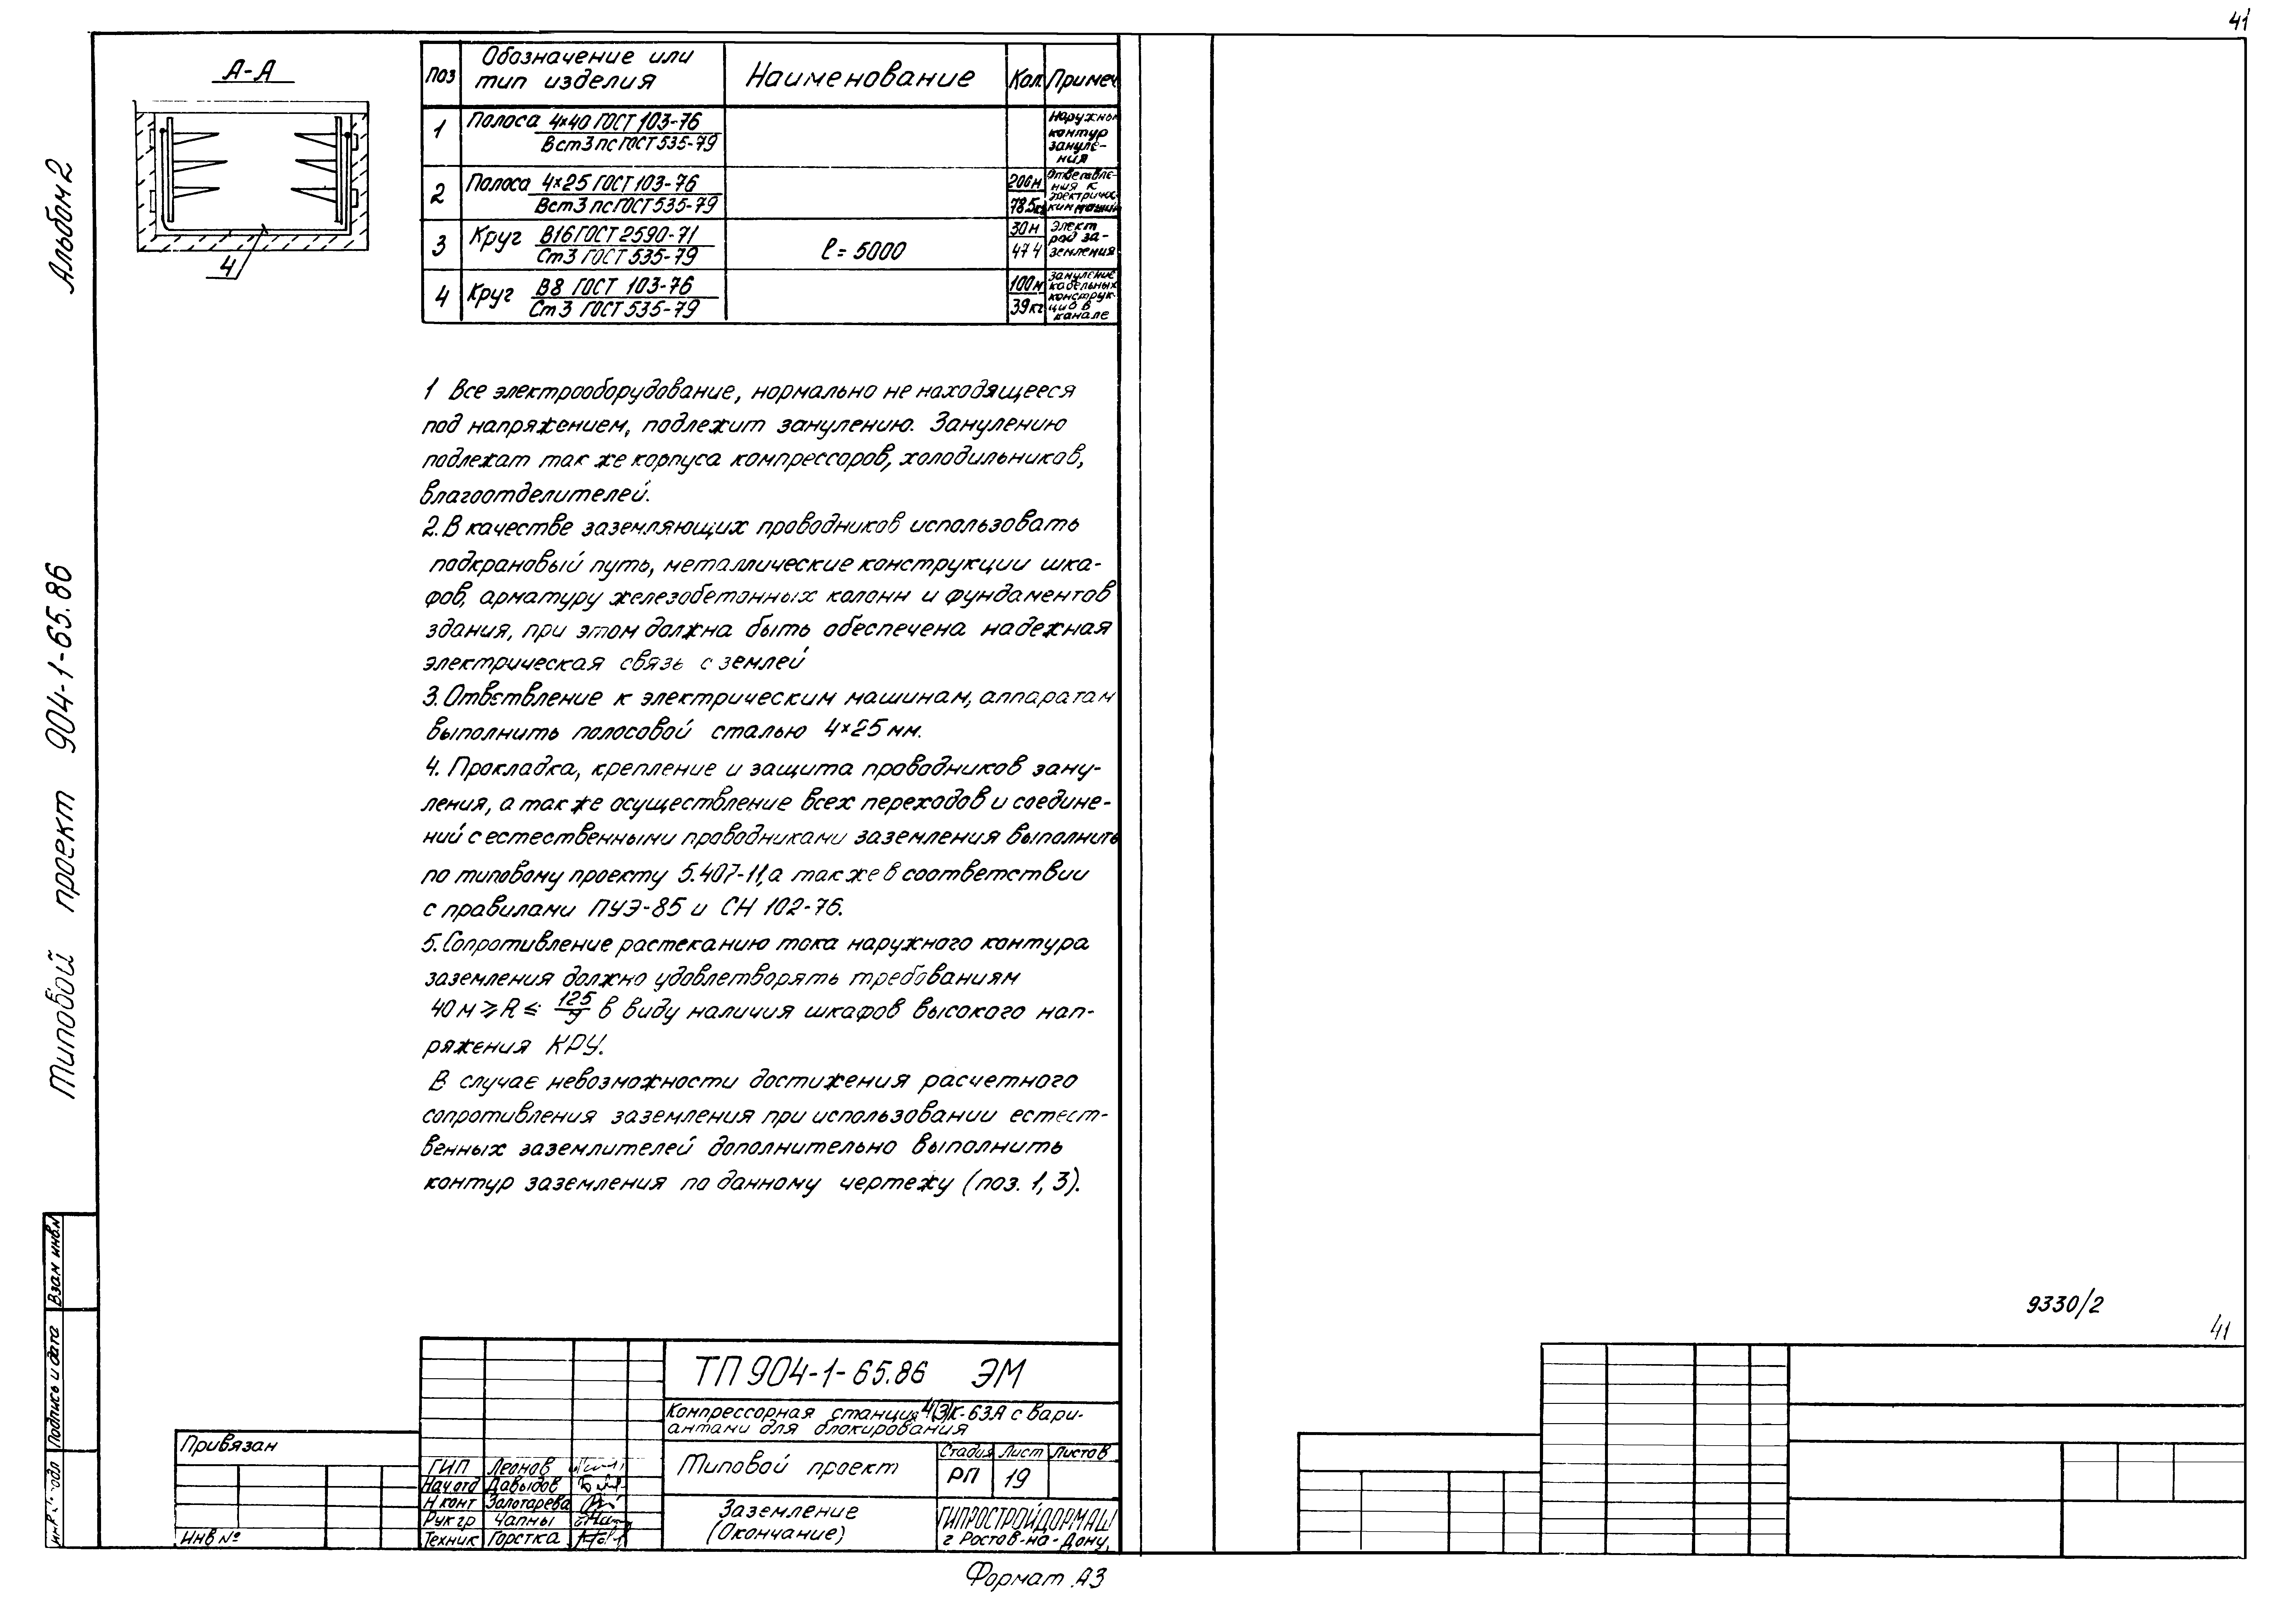 41
Альбом 2
Типовой проект 904-1-65.86
А-А
4
Поз
Обозначение или
тип изделия
Наименование
Кол.
Примеч
1
Полоса 4×40 ГОСТ 103-76
Вст3пс ГОСТ 535-79
Наружны
контур
зануле-
ния
2
Полоса 4×25 ГОСТ 103-76
Вст3пс ГОСТ 535-79
200м
78.5кг
Ответвле-
ния к
электричес-
ким машин
3
Круг В16 ГОСТ 2590-71
Ст3 ГОСТ 535-79
ℓ = 5000
30м
47 4
Элект
род за-
земления
4
Круг В8 ГОСТ 103-76
Ст3 ГОСТ 535-79
100м
39кг
Зануление
кабельных
конструк-
ций в
канале
1 Все электрооборудование, нормально не находящееся
под напряжением, подлежит занулению. Занулению
подлежат так же корпуса компрессоров, холодильников,
влагоотделителей.
2. В качестве заземляющих проводников использовать
подкрановый путь, металлические конструкции шка-
фов, арматуру железобетонных колонн и фундаментов
здания, при этом должна быть обеспечена надежная
электрическая связь с землей
3. Ответвление к электрическим машинам, аппаратам
выполнить полосовой сталью 4×25 мм.
4. Прокладка, крепление и защита проводников зану-
ления, а так же осуществление всех переходов и соедине-
ний с естественными проводниками заземления выполнить
по типовому проекту 5.407-11, а также в соответствии
с правилами ПУЭ-85 и СН 102-76.
5. Сопротивление растеканию тока наружного контура
заземления должно удовлетворять требованиям
4 Ом ⩾ R ⩽ 125/У в виду наличия шкафов высокого нап-
ряжения КРУ.
В случае невозможности достижения расчетного
сопротивления заземления при использовании естест-
венных заземлителей дополнительно выполнить
контур заземления по данному чертежу (поз. 1, 3).
Взам инв.№
Подпись и дата
Привязан
Инв №
ТП 904-1-65.86 ЭМ
Компрессорная станция 4(3)К-63А с вари-
антами для блокирования
Типовой проект
Стадия Лист Листов
РП 19
Заземление
(Окончание)
ГИПРОСТРОЙДОРМАШ
г Ростов-на-Дону
ГИП Леонов
Нач отд Давыдов
Н конт Залотарева
Рук гр Чапны
Техник Горстка
Формат А3
9330/2
41